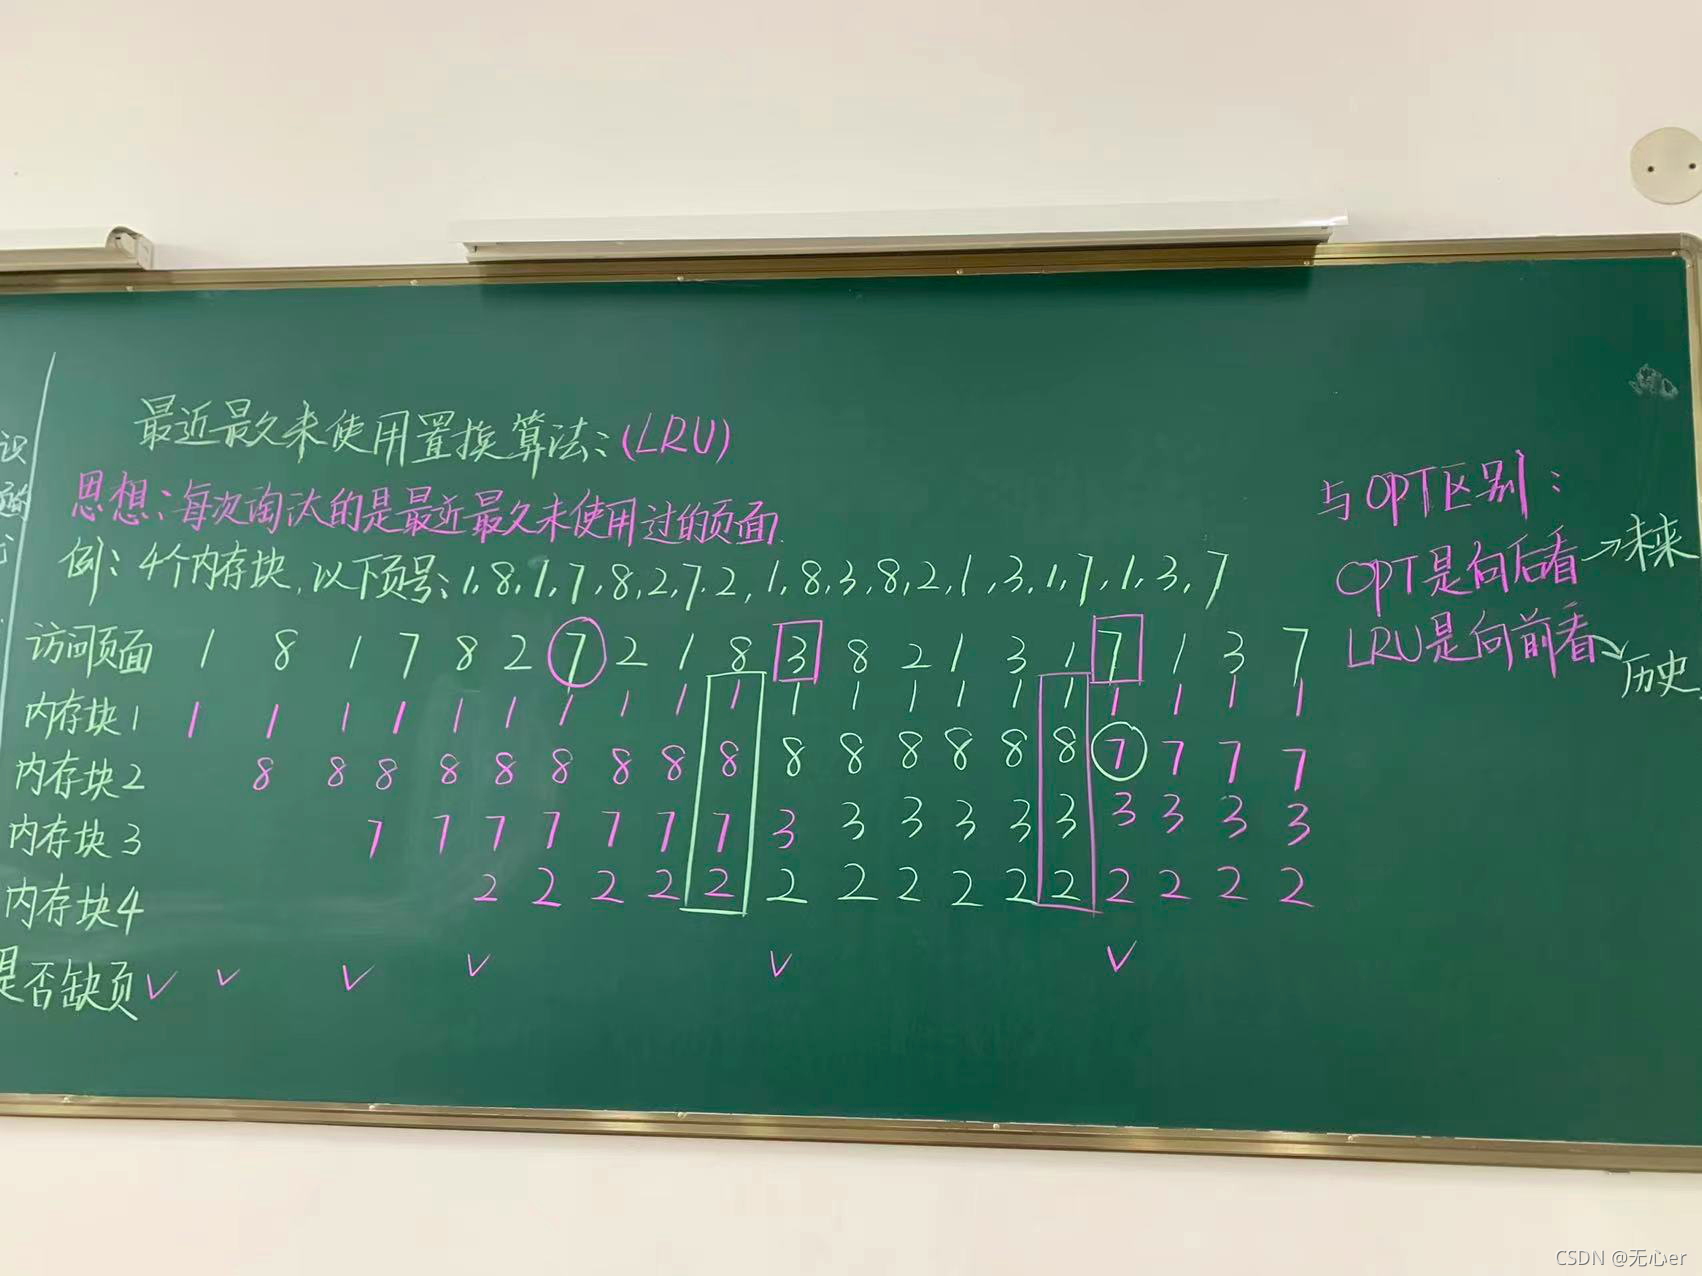 最近最久未使用置换算法：(LRU)
思想：每次淘汰的是最近最久未使用过的页面.
例：4个内存块，以下页号：1,8,1,7,8,2,7,2,1,8,3,8,2,1,3,1,7,1,3,7
访问页面 1 8 1 7 8 2 7 2 1 8 3 8 2 1 3 1 7 1 3 7
内存块1 1 1 1 1 1 1 1 1 1 1 1 1 1 1 1 1 1 1 1 1
内存块2 8 8 8 8 8 8 8 8 8 8 8 8 8 8 8 7 7 7 7
内存块3 7 7 7 7 7 7 7 3 3 3 3 3 3 3 3 3 3
内存块4 2 2 2 2 2 2 2 2 2 2 2 2 2 2 2
是否缺页 √ √ √ √ √ √
与OPT区别：
OPT是向后看→未来
LRU是向前看→历史
识
CSDN @无心er